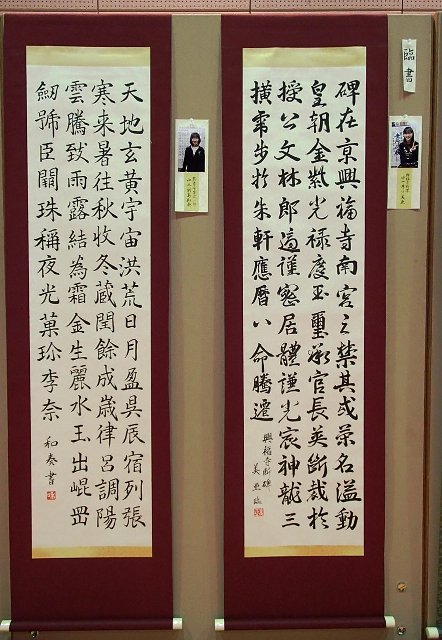 臨書
碑在京興福寺南宮之禁其或榮名溢動
皇朝金紫光祿度玉璽承官長英斷裁於
授公文林郎謹密居體謹光宸神龍三
横霄步於朱軒應曆八命騰遷
興福寺断碑
美亜臨
天地玄黄宇宙洪荒日月盈昃辰宿列張
寒来暑往秋收冬蔵閏餘成歳律呂調陽
雲騰致雨露結為霜金生麗水玉出崐岡
劒號巨闕珠稱夜光菓珎李奈
和奏書